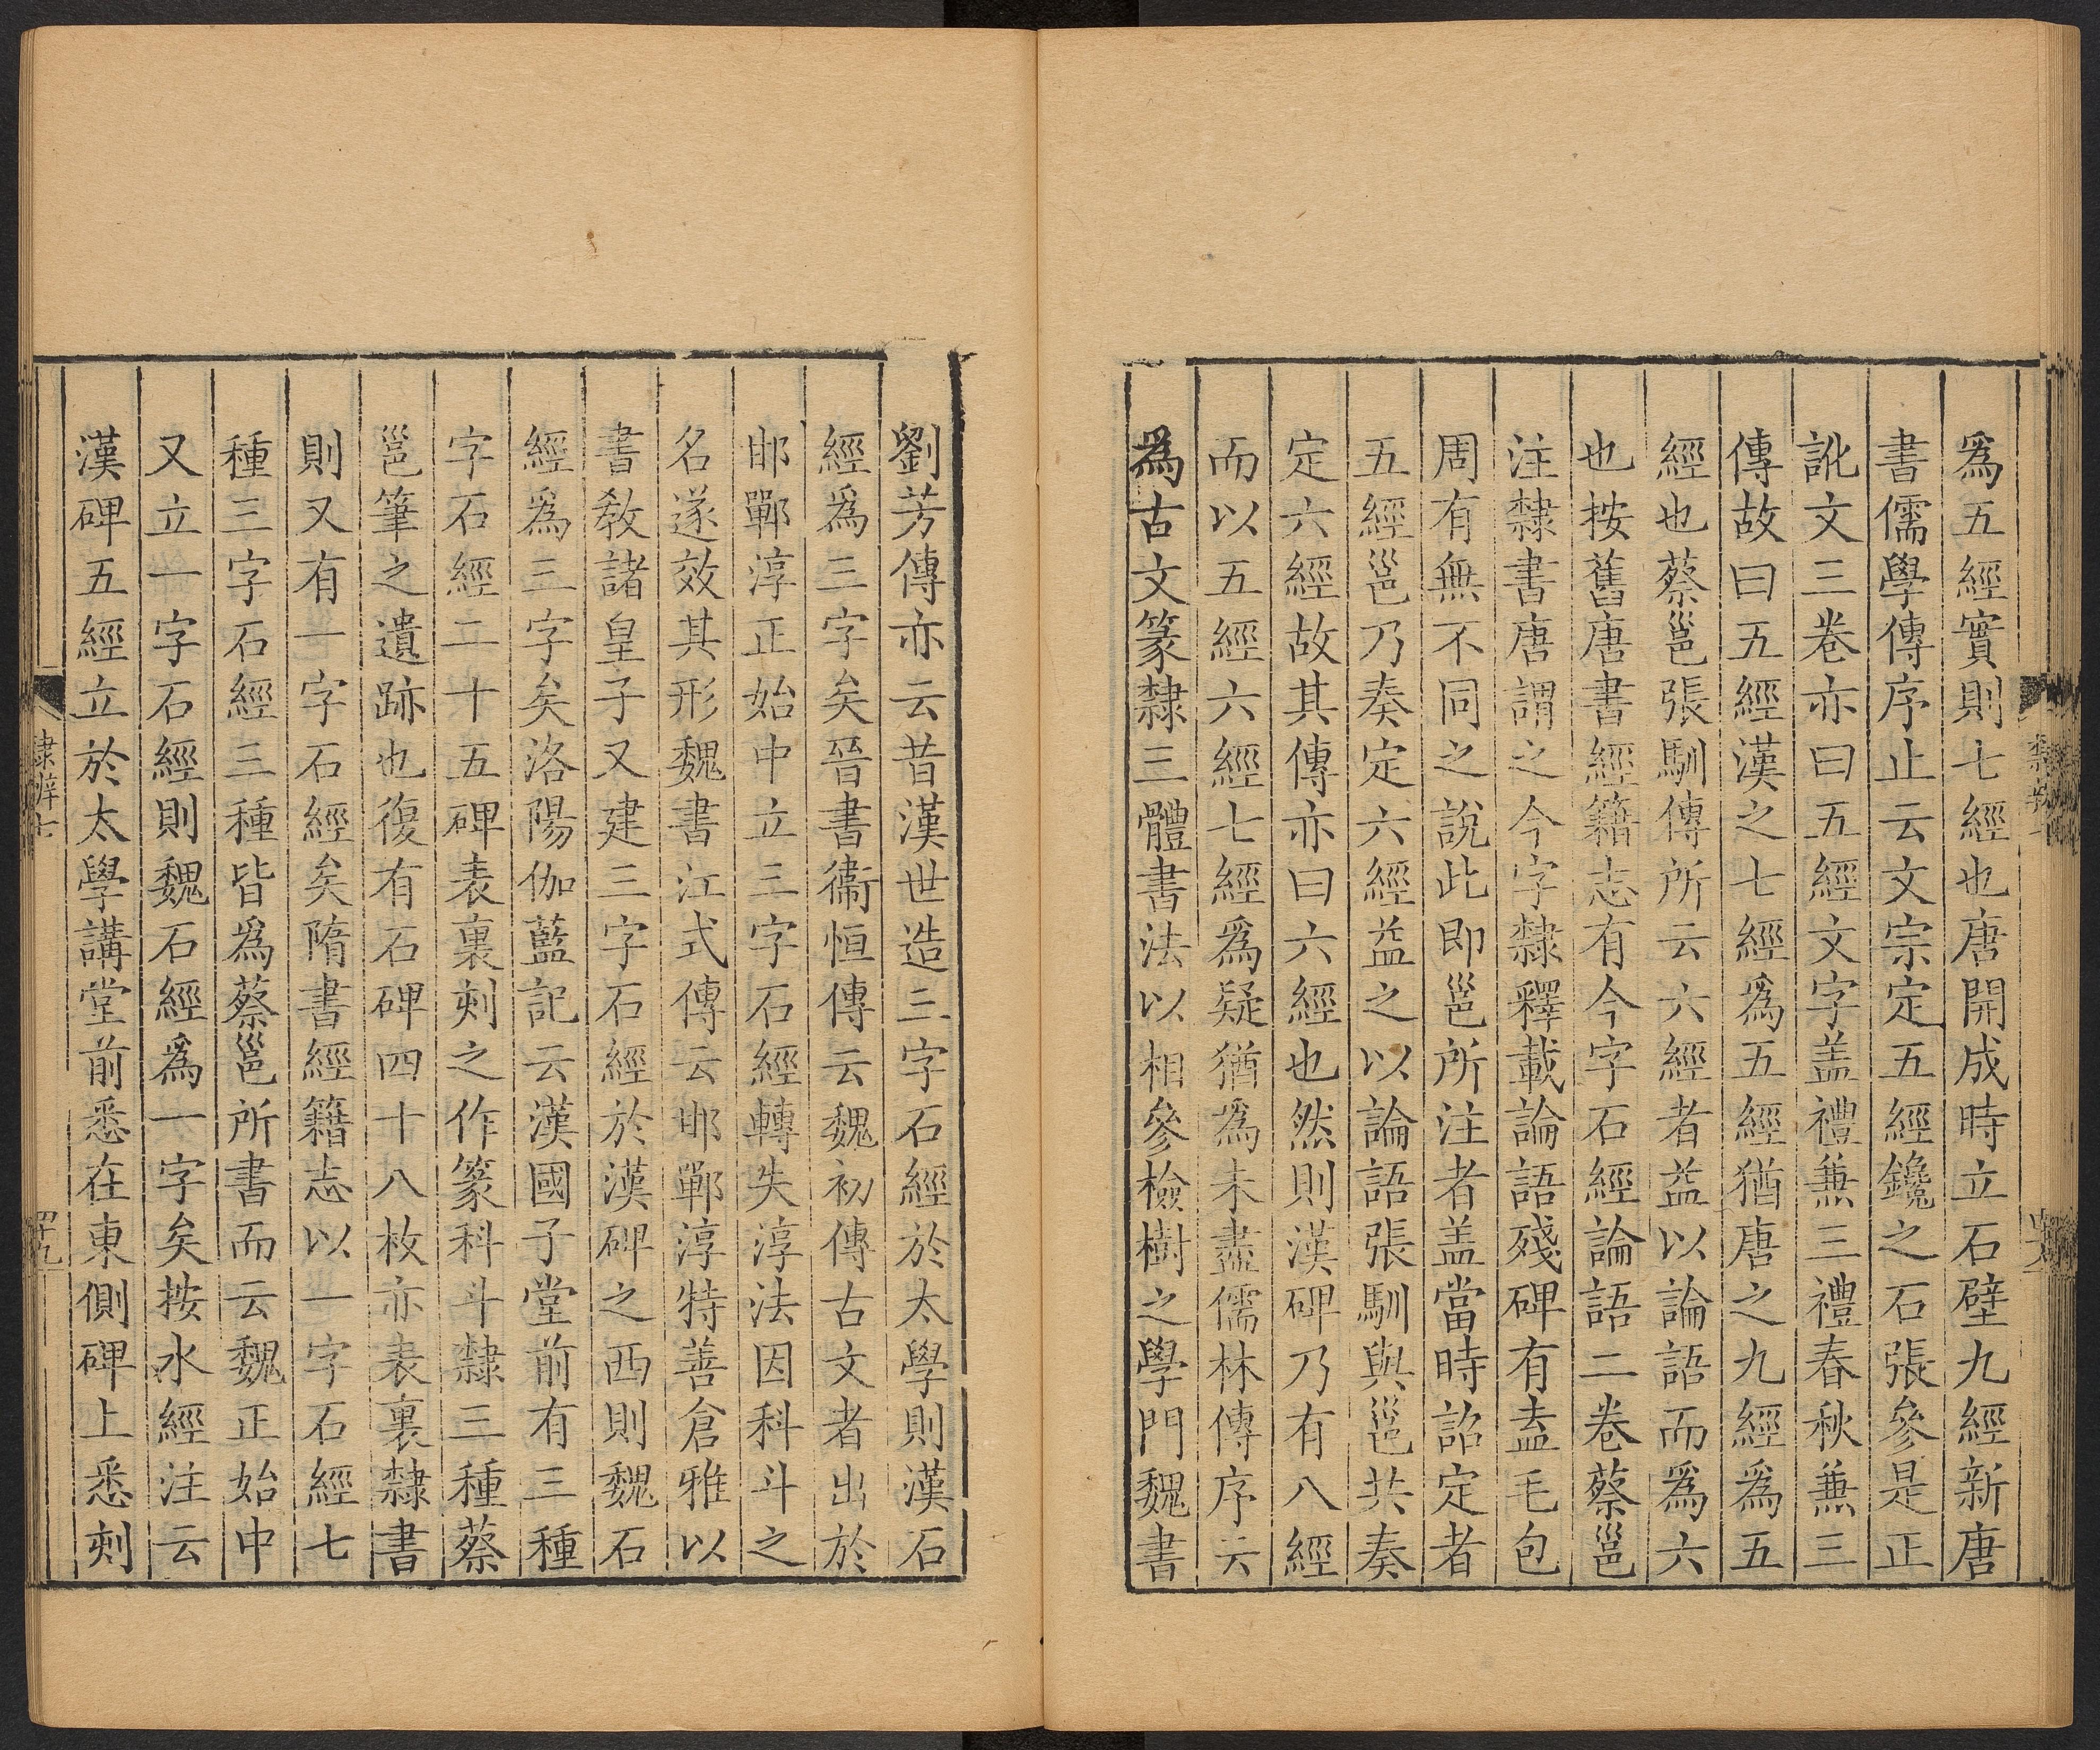 爲五經實則七經也唐開成時立石壁九經新唐
書儒學傳序止云文宗定五經鑱之石張參是正
訛文三卷亦曰五經文字盖禮兼三禮春秋兼三
傳故曰五經漢之七經爲五經猶唐之九經爲五
經也蔡邕張馴傳所云六經者益以論語而爲六
也按舊唐書經籍志有今字石經論語二卷蔡邕
注隸書唐謂之今字隸釋載論語殘碑有盍毛包
周有無不同之說此即邕所注者盖當時詔定者
五經邕乃奏定六經益之以論語張馴與邕共奏
定六經故其傳亦曰六經也然則漢碑乃有八經
而以五經六經七經爲疑猶爲未盡儒林傳序云
爲古文篆隸三體書法以相參檢樹之學門魏書
劉芳傳亦云昔漢世造三字石經於太學則漢石
經爲三字矣晉書衞恒傳云魏初傳古文者出於
邯鄲淳正始中立三字石經轉失淳法因科斗之
名遂效其形魏書江式傳云邯鄲淳特善倉雅以
書教諸皇子又建三字石經於漢碑之西則魏石
經爲三字矣洛陽伽藍記云漢國子堂前有三種
字石經二十五碑表裏刻之作篆科斗隸三種蔡
邕筆之遺跡也復有石碑四十八枚亦表裏隸書
則又有一字石經矣隋書經籍志以一字石經七
種三字石經三種皆爲蔡邕所書而云魏正始中
又立一字石經則魏石經爲一字矣按水經注云
漢碑五經立於太學講堂前悉在東側碑上悉刻
隸辨七
四十九